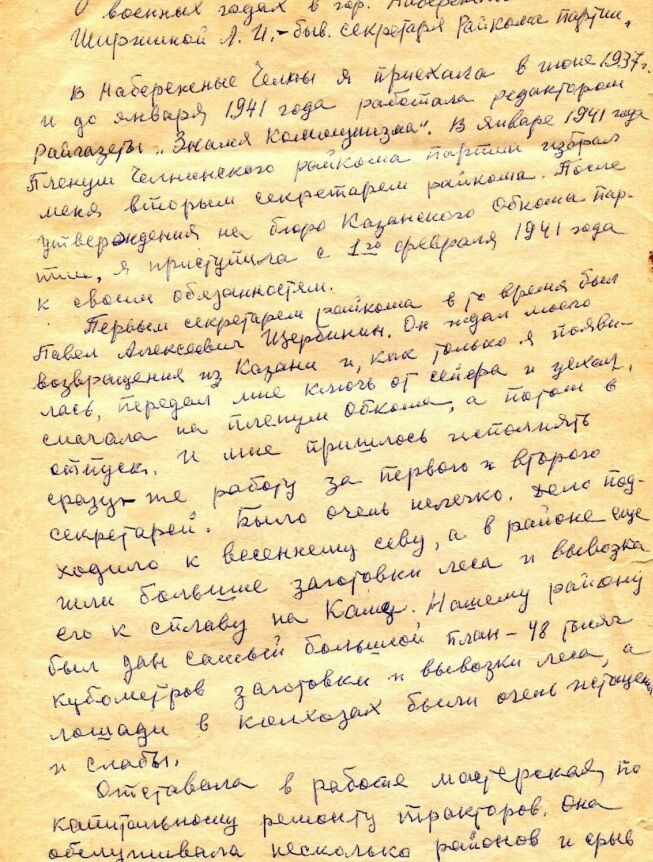 О военных годах в гор. Набережн
Ширшиной Л. И. - быв. секретаря Райкома партии.
В Набережные Челны я приехала в июне 1937 г.
и до января 1941 года работала редактором
райгазеты „Знамя коммунизма". В январе 1941 года
Пленум Челнинского райкома партии избрал
меня вторым секретарем райкома. После
утверждения на бюро Казанского Обкома пар-
тии, я приступила с 1го февраля 1941 года
к своим обязанностям.
Первым секретарем райкома в то время был
Павел Алексеевич Щербинин. Он ждал моего
возвращения из Казани и, как только я появи-
лась, передал мне ключ от сейфа и уехал,
сначала на пленум обкома, а потом в
отпуск. И мне пришлось исполнять
сразу-же работу за первого и второго
секретарей. Было очень нелегко. Дело под-
ходило к весеннему севу, а в районе еще
шли большие заготовки леса и вывозка
его к сплаву на Каму. Нашему району
был дан самый большой план - 48 тысяч
кубометров заготовки и вывозки леса, а
лошади в колхозах были очень истощены
и слабы.
Отставала в работе мастерская по
капитальному ремонту тракторов. Она
обслуживала несколько районов и срыв